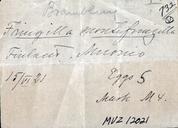 Brambling
732
Fringilla montifringilla
Finland, Muonio
15/VI 21
Eggs 5
Mark M4.
MVZ 12021